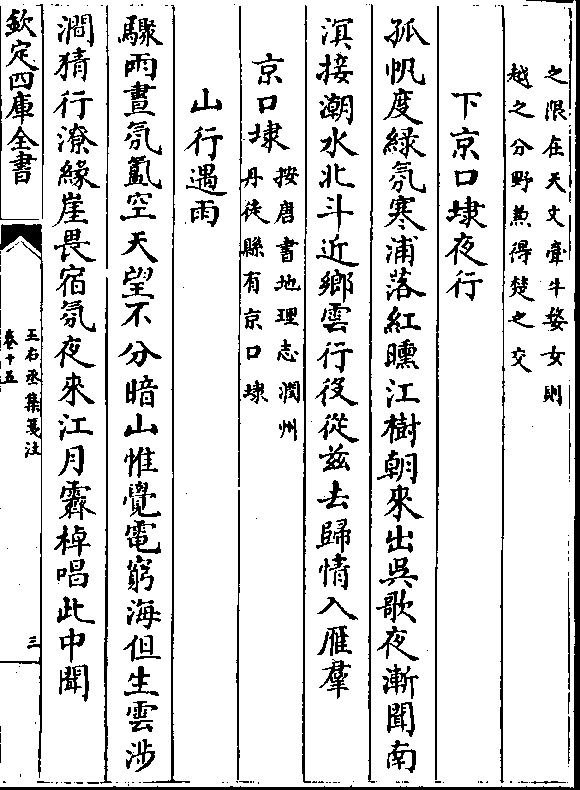 之限在天文牽牛婺女則
越之分野兼得楚之交
下京口埭夜行
孤帆度綠氛寒浦落紅曛江樹朝來出吳歌夜漸聞南
溟接潮水北斗近鄉雲行役從兹去歸情入雁羣
京口埭
按唐書地理志潤州
丹徒縣有京口埭
山行遇雨
驟雨晝氛氲空天望不分暗山惟覺電窮海但生雲涉
澗猜行潦緣崖畏宿氛夜來江月霽棹唱此中聞
欽定四庫全書
王右丞集箋注
卷十五
三